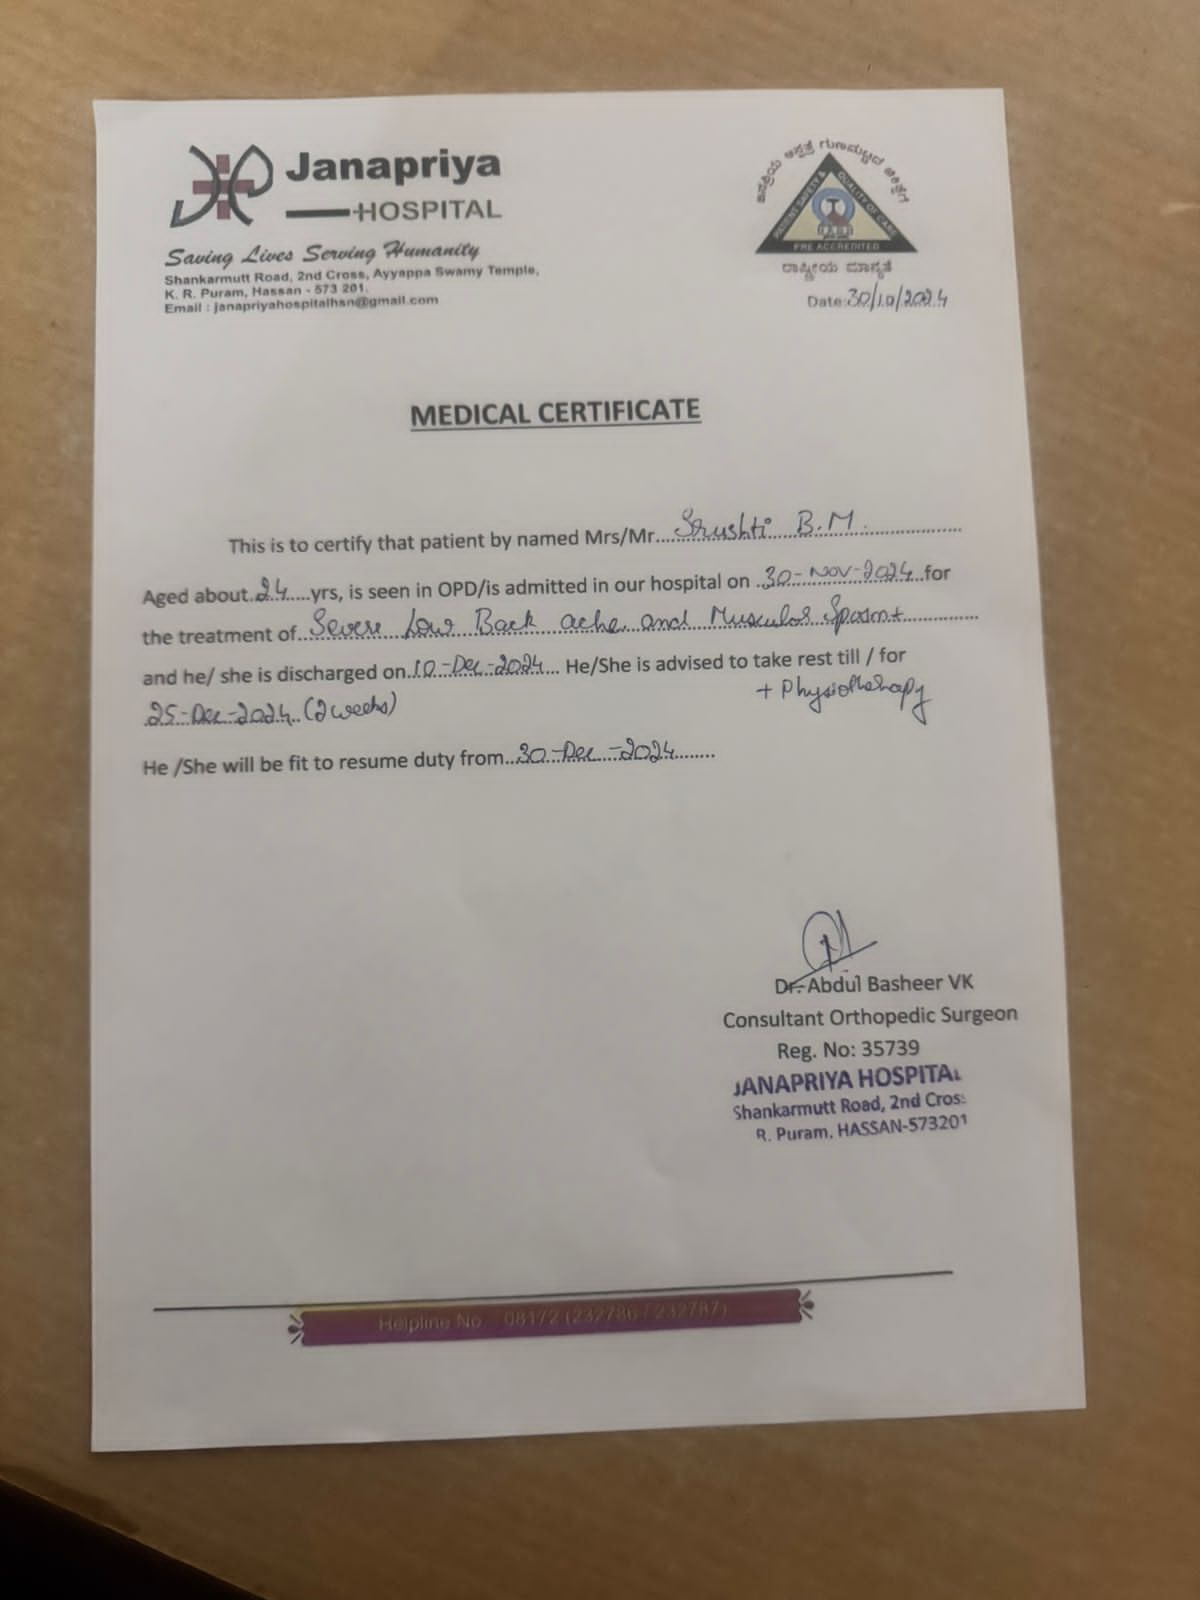 Janapriya
HOSPITAL
Saving Lives Serving Humanity
Shankarmutt Road, 2nd Cross, Ayyappa Swamy Temple,
K. R. Puram, Hassan - 573 201.
Email : janapriyahospitalhsn@gmail.com
PATIENT SAFETY & QUALITY OF CARE
PRE ACCREDITED
ರಾಷ್ಟ್ರೀಯ ಮಾನ್ಯತೆ
Date:30/10/2024
MEDICAL CERTIFICATE
This is to certify that patient by named Mrs/Mr....Srushti B.M...................
Aged about..24....yrs, is seen in OPD/is admitted in our hospital on ..30-Nov-2024..for
the treatment of..Severe Low Back ache and Muscular Spasm+..............
and he/ she is discharged on.10-Dec-2024... He/She is advised to take rest till / for
25-Dec-2024..(2 weeks) + Physiotherapy
He /She will be fit to resume duty from..30-Dec-2024........
Dr. Abdul Basheer VK
Consultant Orthopedic Surgeon
Reg. No: 35739
JANAPRIYA HOSPITAL
Shankarmutt Road, 2nd Cros
R. Puram, HASSAN-573201
Helpline No. : 08172 (232786 / 232787)